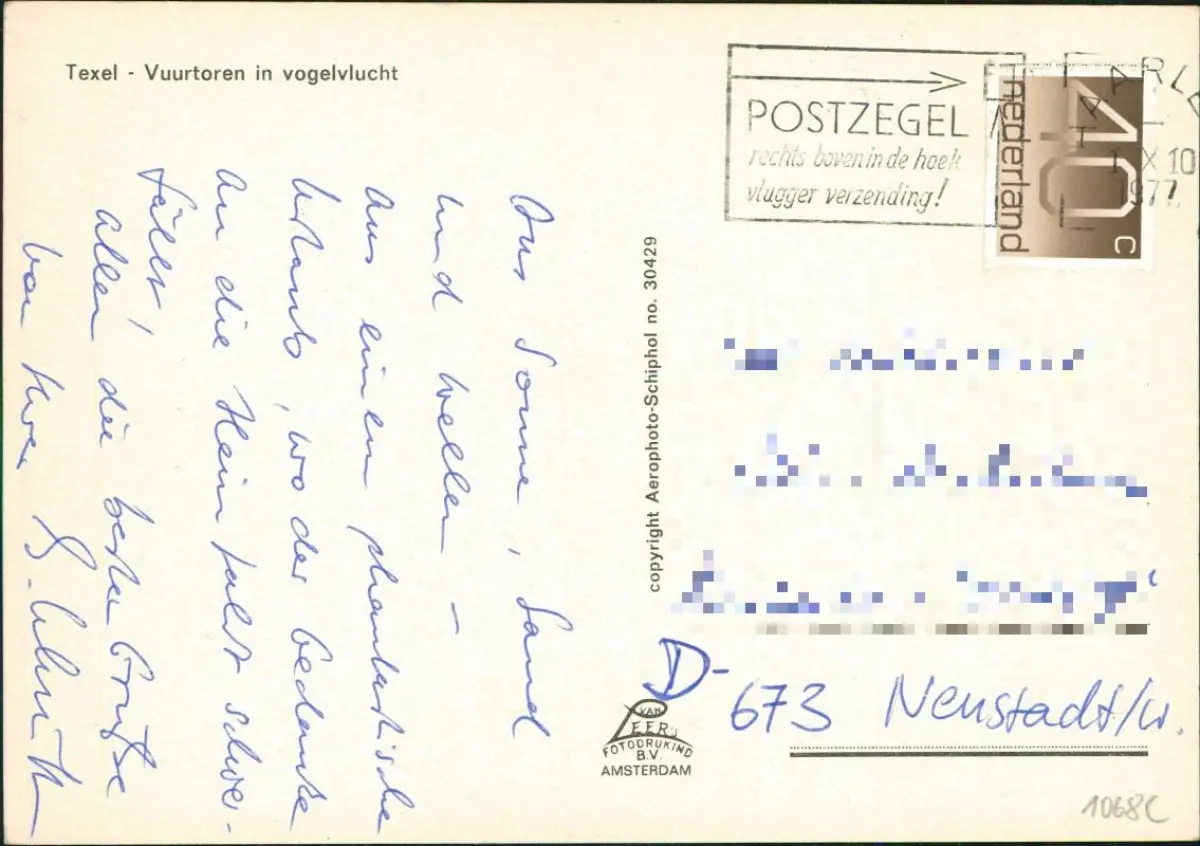 Texel - Vuurtoren in vogelvlucht
POSTZEGEL
rechts boven in de hoek
vlugger verzending!
HAARLE
X 10
1977
nederland
40 c
Aus Sonne, Sand
und Wellen –
Aus einem phantastischen
Urlaub, wo der Gedanke
an die Heimfahrt schwer-
fällt,
allen die besten Grüße
von Ihrer
copyright Aerophoto-Schiphol no. 30429
D-673 Neustadt/W.
VAN
LEER's
FOTODRUKIND
B.V.
AMSTERDAM
1068C